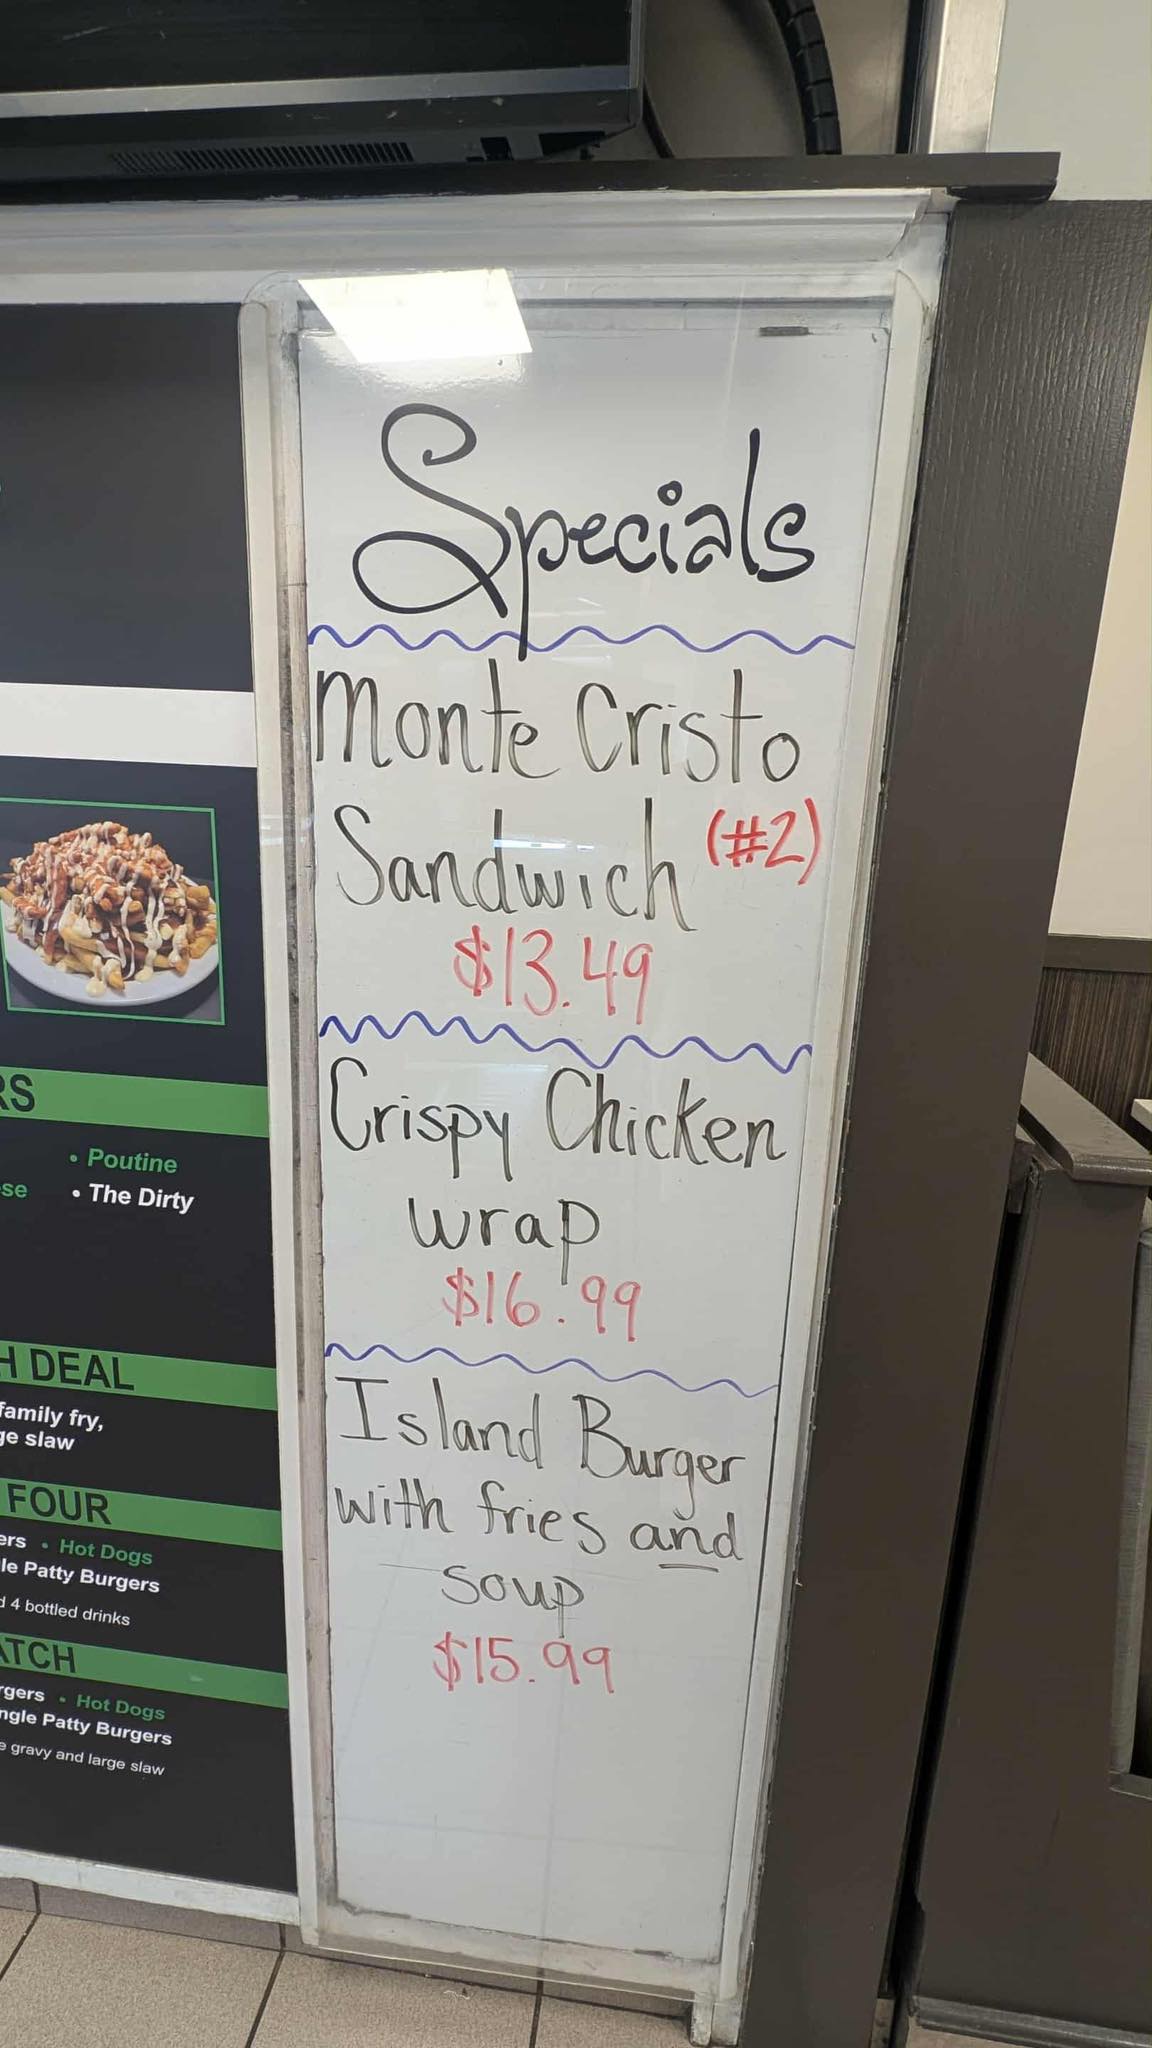 Specials
Monte Cristo
Sandwich (#2)
$13.49
Crispy Chicken
wrap
$16.99
Island Burger
with fries and
soup
$15.99
RS
• Poutine
se • The Dirty
H DEAL
family fry,
ge slaw
FOUR
ers • Hot Dogs
le Patty Burgers
d 4 bottled drinks
ATCH
rgers • Hot Dogs
ngle Patty Burgers
e gravy and large slaw